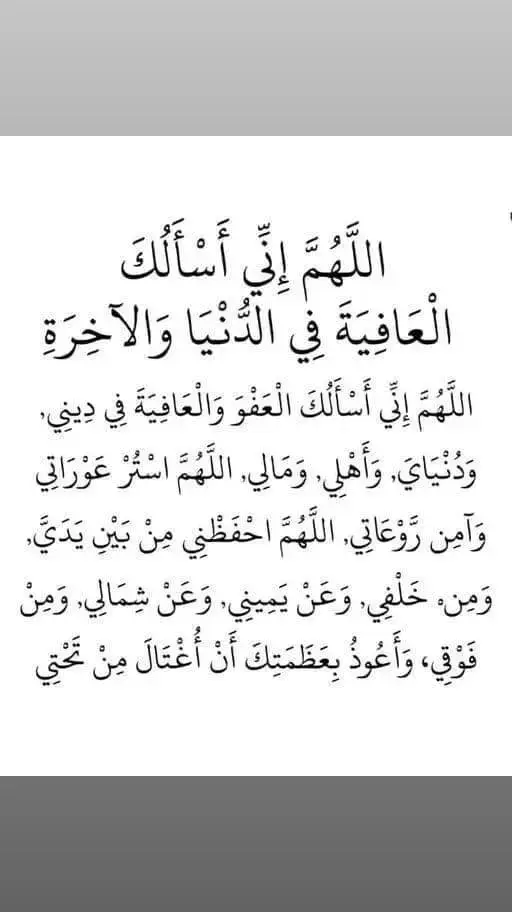 اللَّهُمَّ إِنِّي أَسْأَلُكَ
الْعَافِيَةَ فِي الدُّنْيَا وَالآخِرَةِ
اللَّهُمَّ إِنِّي أَسْأَلُكَ الْعَفْوَ وَالْعَافِيَةَ فِي دِينِي,
وَدُنْيَايَ, وَأَهْلِي, وَمَالِي, اللَّهُمَّ اسْتُرْ عَوْرَاتِي
وَآمِن رَّوْعَاتِي, اللَّهُمَّ احْفَظْنِي مِنْ بَيْنِ يَدَيَّ,
وَمِنْ خَلْفِي, وَعَنْ يَمِينِي, وَعَنْ شِمَالِي, وَمِنْ
فَوْقِي، وَأَعُوذُ بِعَظَمَتِكَ أَنْ أُغْتَالَ مِنْ تَحْتِي